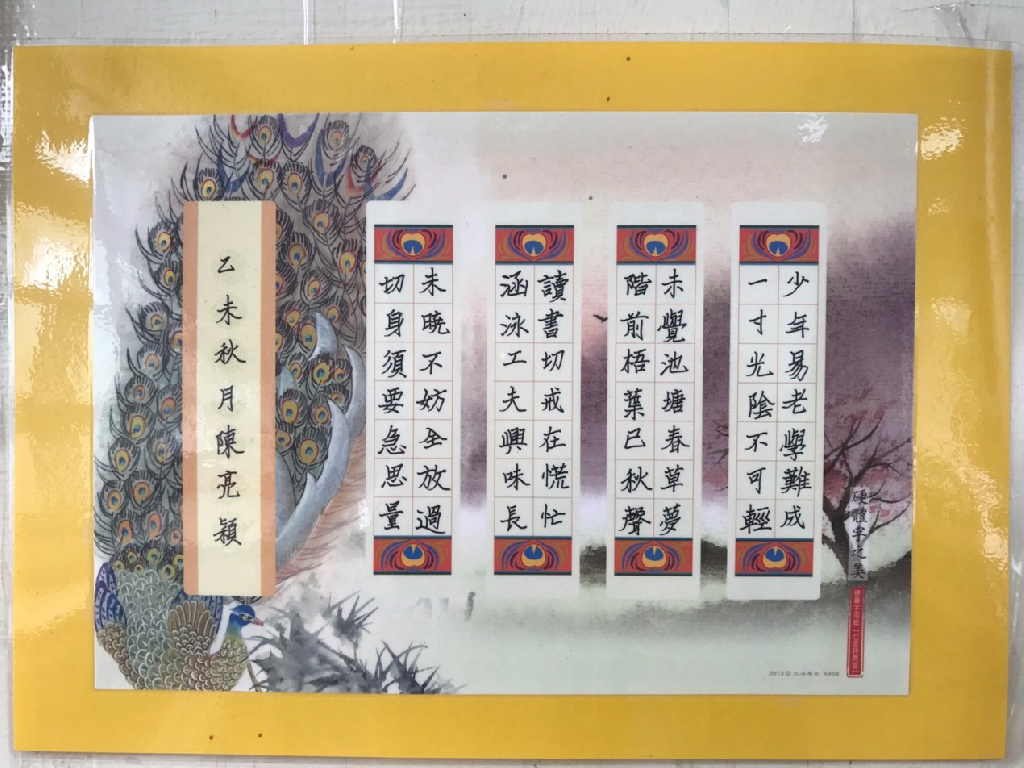 少年易老學難成
一寸光陰不可輕
未覺池塘春草夢
階前梧葉已秋聲
讀書切戒在慌忙
涵泳工夫興味長
未曉不妨全放過
切身須要急思量
乙未秋月陳亮穎
硬體字之美